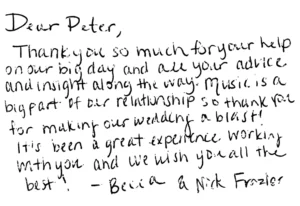 Dear Peter,
Thank you so much for your help
on our big day and all your advice
and insight along the way. Music is a
big part of our relationship so thank you
for making our wedding a blast!
It's been a great experience working
with you and we wish you all the
best! - Becca & Nick Frazier